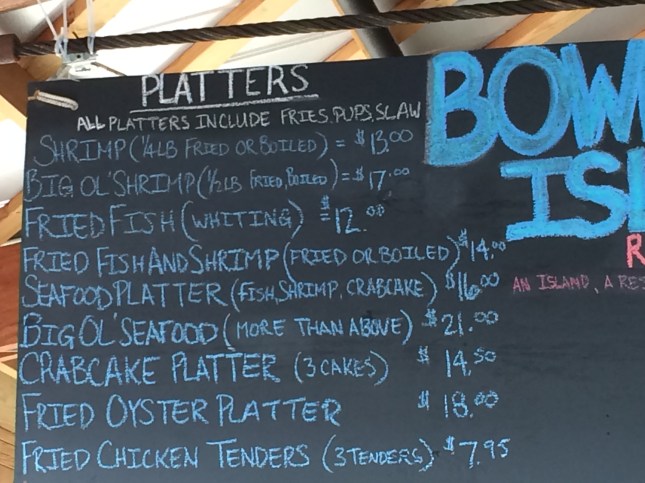 PLATTERS
ALL PLATTERS INCLUDE FRIES, PUPS, SLAW
SHRIMP (1/4 LB FRIED OR BOILED) = $13.00
BIG OL' SHRIMP (1/2 LB FRIED, BOILED) = $17.00
FRIED FISH (WHITING) $12.00
FRIED FISH AND SHRIMP (FRIED OR BOILED) $14.00
SEAFOOD PLATTER (FISH, SHRIMP, CRABCAKE) $16.00
BIG OL' SEAFOOD (MORE THAN ABOVE) $21.00
CRABCAKE PLATTER (3 CAKES) $14.50
FRIED OYSTER PLATTER $18.00
FRIED CHICKEN TENDERS (3 TENDERS) $7.95
BOW
ISL
R
AN ISLAND, A RES